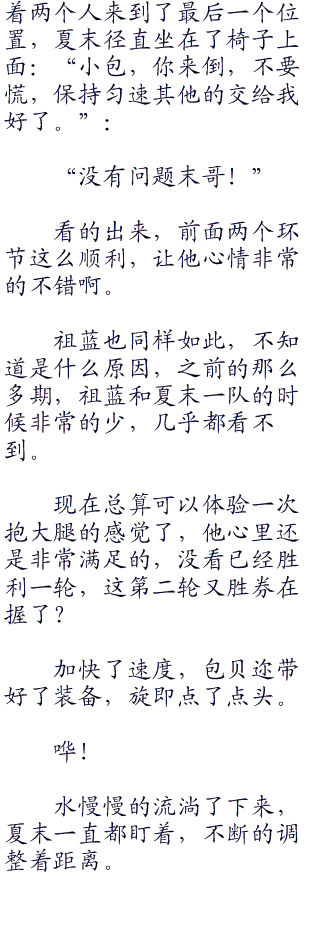 着两个人来到了最后一个位
置，夏末径直坐在了椅子上
面：“小包，你来倒，不要
慌，保持匀速其他的交给我
好了。”：
“没有问题末哥！”
看的出来，前面两个环
节这么顺利，让他心情非常
的不错啊。
祖蓝也同样如此，不知
道是什么原因，之前的那么
多期，祖蓝和夏末一队的时
候非常的少，几乎都看不
到。
现在总算可以体验一次
抱大腿的感觉了，他心里还
是非常满足的，没看已经胜
利一轮，这第二轮又胜券在
握了？
加快了速度，包贝迩带
好了装备，旋即点了点头。
哗！
水慢慢的流淌了下来，
夏末一直都盯着，不断的调
整着距离。